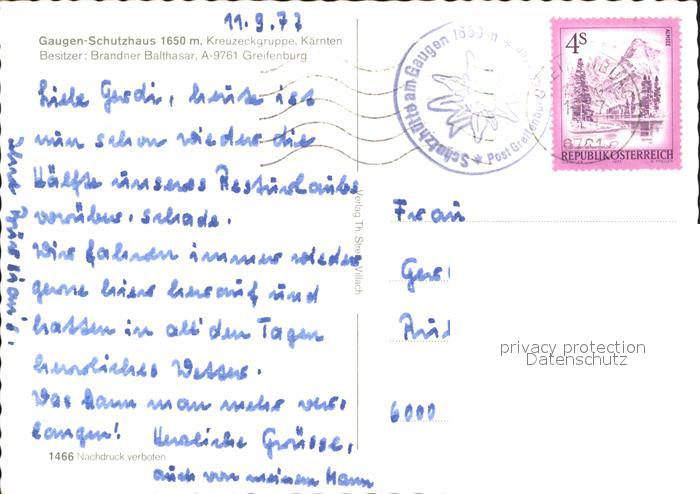 11.9.77
Gaugen-Schutzhaus 1650 m, Kreuzeckgruppe, Kärnten
Besitzer: Brandner Balthasar, A-9761 Greifenburg
Liebe Gerdi, heute ist
nun schon wieder die
Hälfte unseres Resturlaubs
vorüber, schade.
Wir fahren immer wieder
gerne hier herauf und
hatten in all' den Tagen
herrliches Wetter.
Was kann man mehr ver-
langen! Herzliche Grüsse,
auch von meinem Mann
1466 Nachdruck verboten
Verlag Th. Villach
Schutzhütte am Gaugen 1650 m
Post Greifenburg
4s
ALMSEE
REPUBLIK ÖSTERREICH
Frau
Ger
6000
privacy protection
Datenschutz